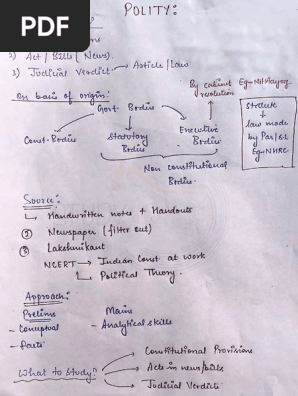 POLITY:
PDF
2) Act / Bills (News).
3) Judicial Verdict → Article / Law
On basis of origin:
By cabinet resolution
Eg → Niti Aayog
Govt. Bodies
Const. Bodies
Statutory Bodies
Executive Bodies
Statute
↓
law made
by Par/SL
Eg → NHRC
Non constitutional
Bodies.
Source:
Handwritten notes + Handouts
② Newspaper (filter out)
③ Lakshmikant
NCERT → Indian Const at work
Political Theory.
Approach:
Prelims
- Conceptual
- Facts
Mains
- Analytical skills
What to Study?
Constitutional Provisions
Acts in news/bills
Judicial Verdicts